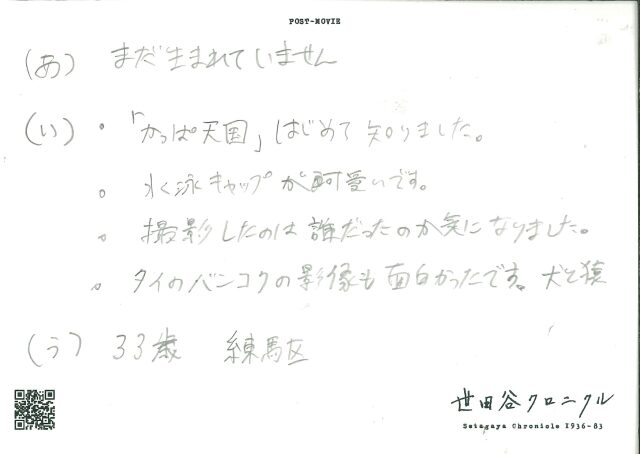 POST-MOVIE
(あ) まだ生まれていません
(い)・「かっぱ天国」はじめて知りました。
。水泳キャップが可愛いです。
。撮影したのは誰だったのか気になりました。
。タイのバンコクの影像も面白かったです。犬と猿
(う) 33歳 練馬区
世田谷クロニクル
Setagaya Chronicle 1936-83